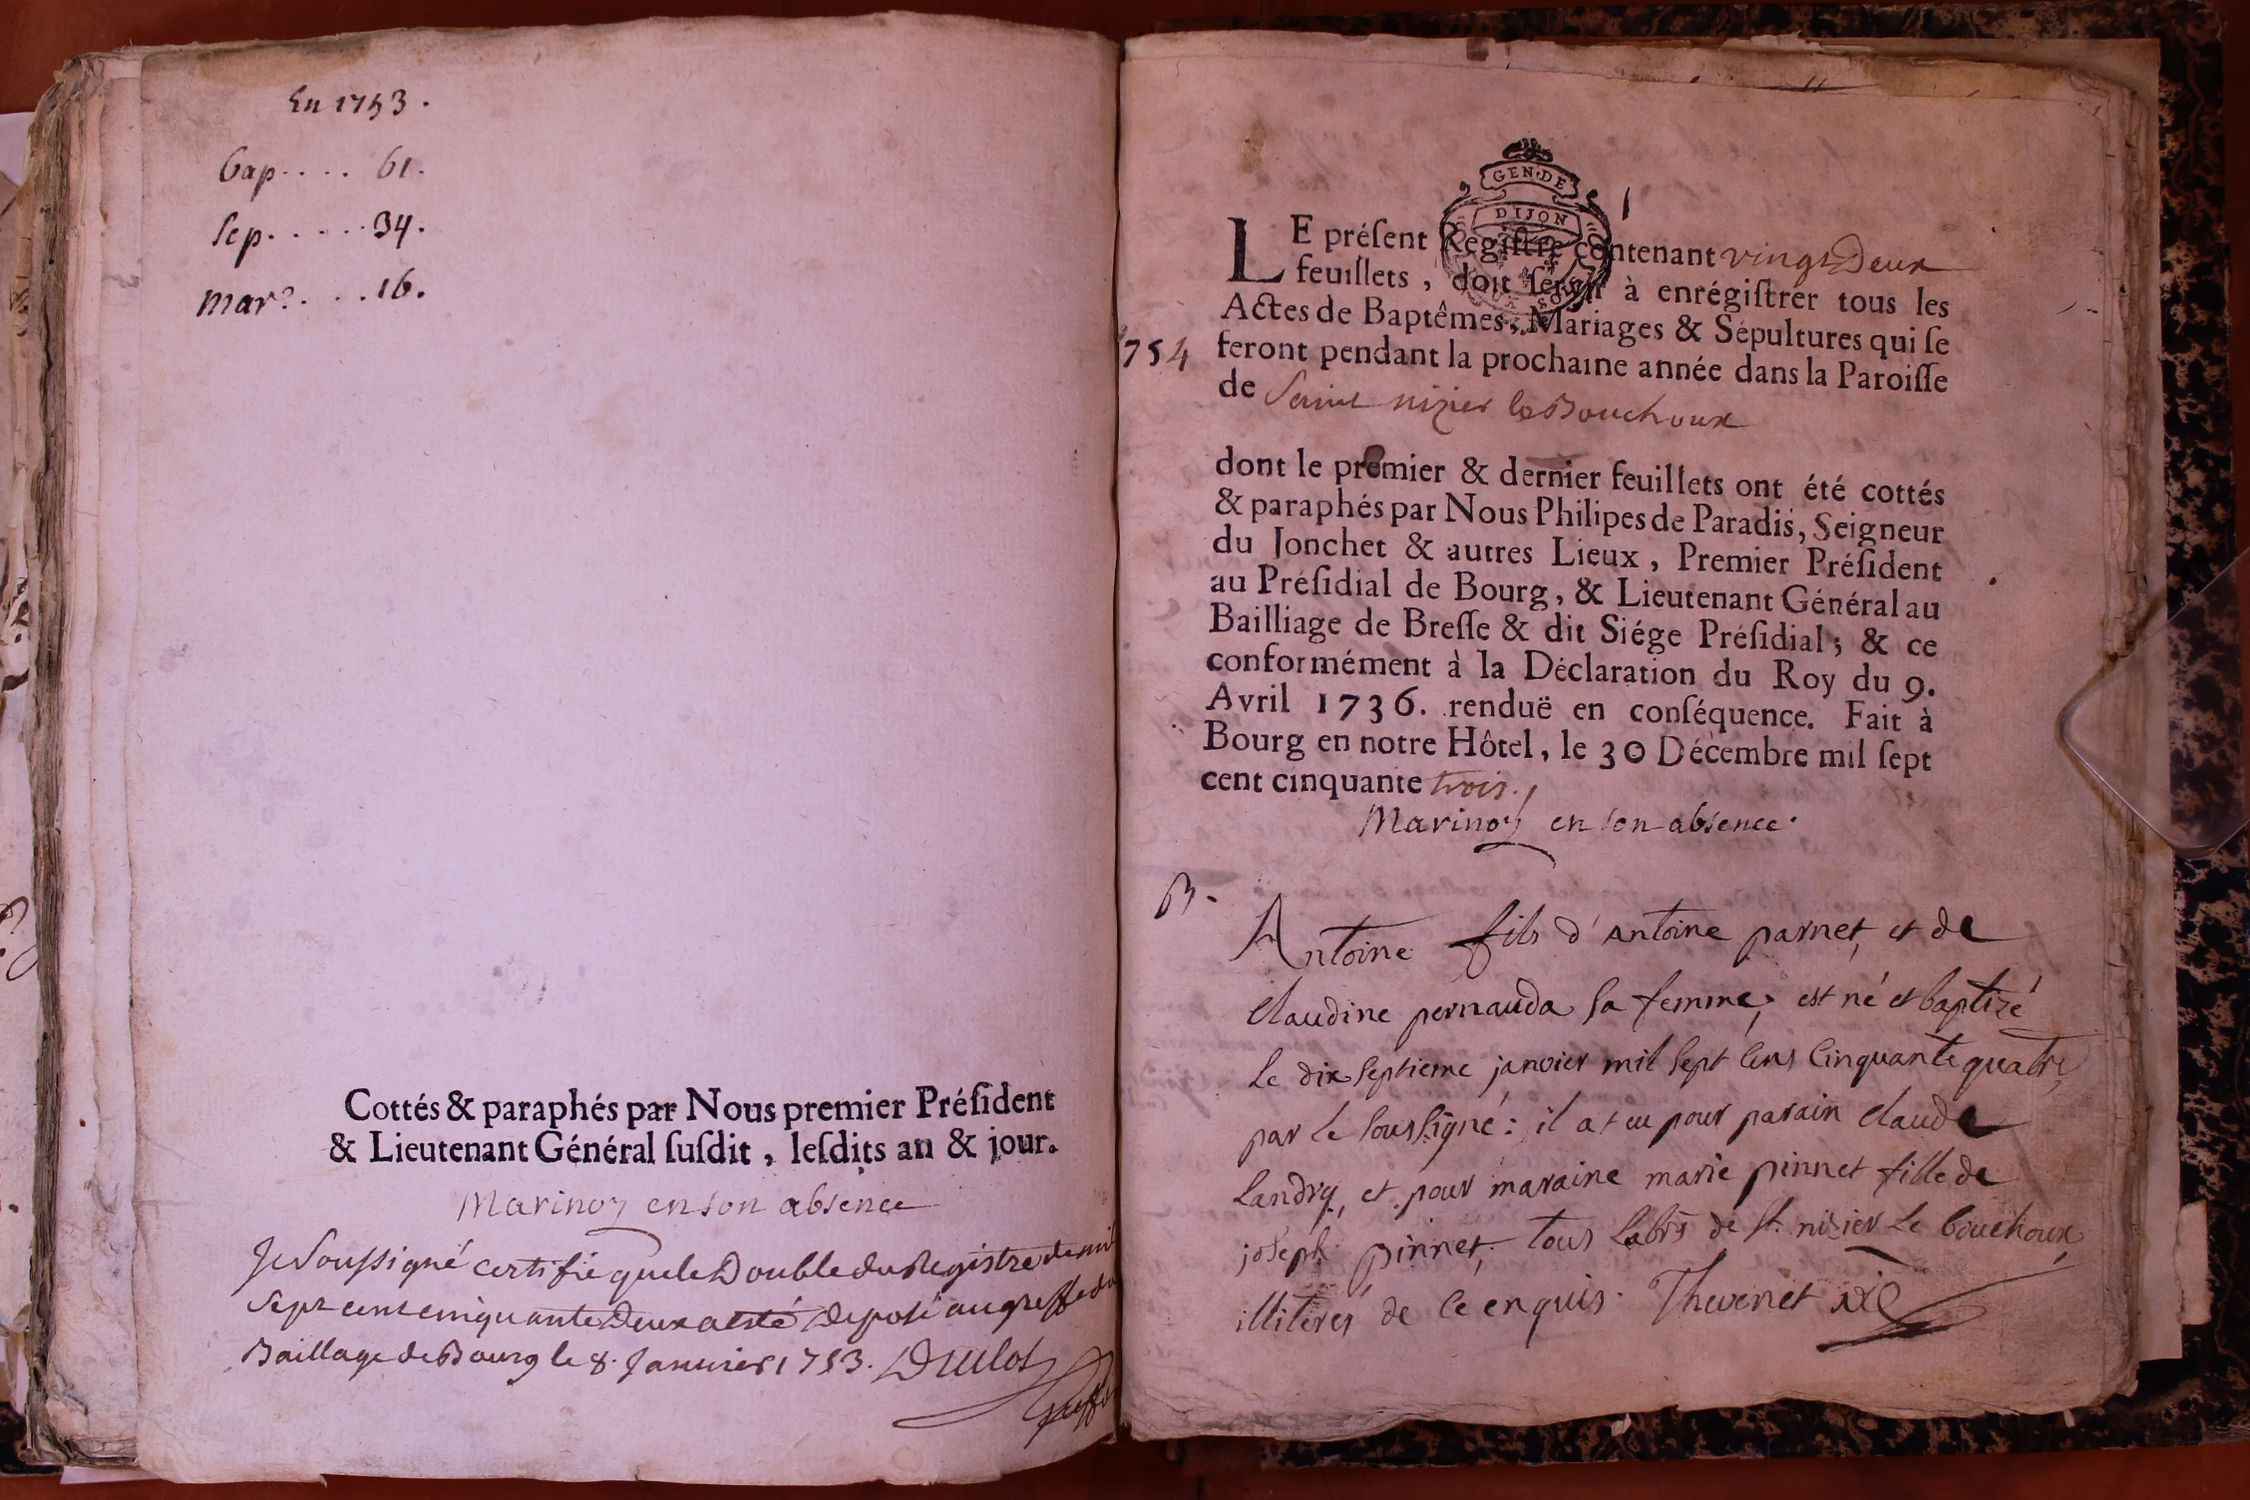 En 1753.
bap.... 61.
sep..... 34.
mar?.... 16.
Cottés & paraphés par Nous premier Préſident
& Lieutenant Général ſuſdit, leſdits an & jour.
Marinoz en son absence
Je Soussigné certifie que le Double du Registre de mil
Sept cent cinquante deux a esté déposé au greffe du
Baillage de Bourg le 8. Janvier 1753.
greffi
GEN. DE
DIJON
1
LE préſent Regiſtre contenant vingt Deux
feuillets, doit ſervir à enrégiſtrer tous les
Actes de Baptêmes, Mariages & Sépultures qui ſe
1754 feront pendant la prochaine année dans la Paroiſſe
de Saint nizier le Bouchoux
dont le premier & dernier feuillets ont été cottés
& paraphés par Nous Philipes de Paradis, Seigneur
du Jonchet & autres Lieux, Premier Préſident
au Préſidial de Bourg, & Lieutenant Général au
Bailliage de Breſſe & dit Siége Préſidial; & ce
conformément à la Déclaration du Roy du 9.
Avril 1736. renduë en conſéquence. Fait à
Bourg en notre Hôtel, le 30 Décembre mil ſept
cent cinquante trois.
Marinoz en son absence.
B.
Antoine fils d'Antoine parnet, et de
claudine pernauda sa femme, est né et baptizé
le dix septieme janvier mil sept cens cinquante quatre,
par le soussigné: il a eu pour parain claude
Landry, et pour maraine marie pinnet fille de
joseph pinnet, tous labrs de st. nizier le bouchoux,
illiterés de ce enquis. Thevenet